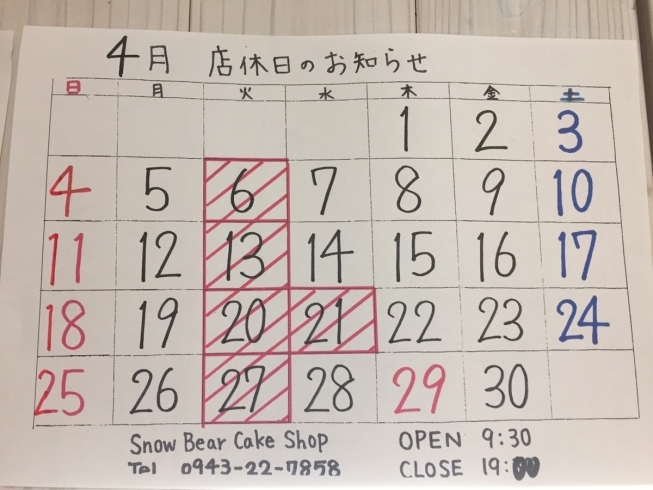 4月 店休日のお知らせ
日 月 火 水 木 金 土
1 2 3
4 5 6 7 8 9 10
11 12 13 14 15 16 17
18 19 20 21 22 23 24
25 26 27 28 29 30
Snow Bear Cake Shop OPEN 9:30
Tel 0943-22-7858 CLOSE 19:00